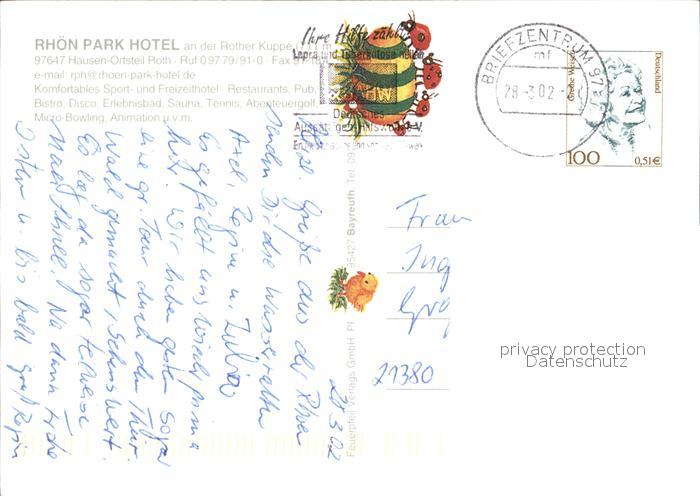 RHÖN PARK HOTEL an der Rother Kuppe
97647 Hausen-Ortsteil Roth · Ruf 09779/91-0 · Fax
e-mail: rph@rhoen-park-hotel.de
Komfortables Sport- und Freizeithotel · Restaurants, Pub,
Bistro, Disco, Erlebnisbad, Sauna, Tennis, Abenteuergolf
Micro-Bowling, Animation u.v.m.
Ihre Hilfe zählt
Lepra und Tuberkulose heilen
DAHW
Deutsches
Aussätzigen-Hilfswerk e.V.
BRIEFZENTRUM 97
mf
28-3.02
Deutschland
100
0,51€
28.3.02
Grüße aus der Rhön
senden Dir, die
Axel, Regin u. Julia
Es gefällt uns
hier. Wir haben gestern sogar
eine gr. Tour durch den Thür.
Wald gemacht, sehenswert.
Es lag da sogar teilweise
Schnee. Na dann Frohe
Ostern u. bis bald Gruß Regin
Frau
Ing
21380
Feuerpfeil Verlags GmbH
95427 Bayreuth Tel. 09
privacy protection
Datenschutz